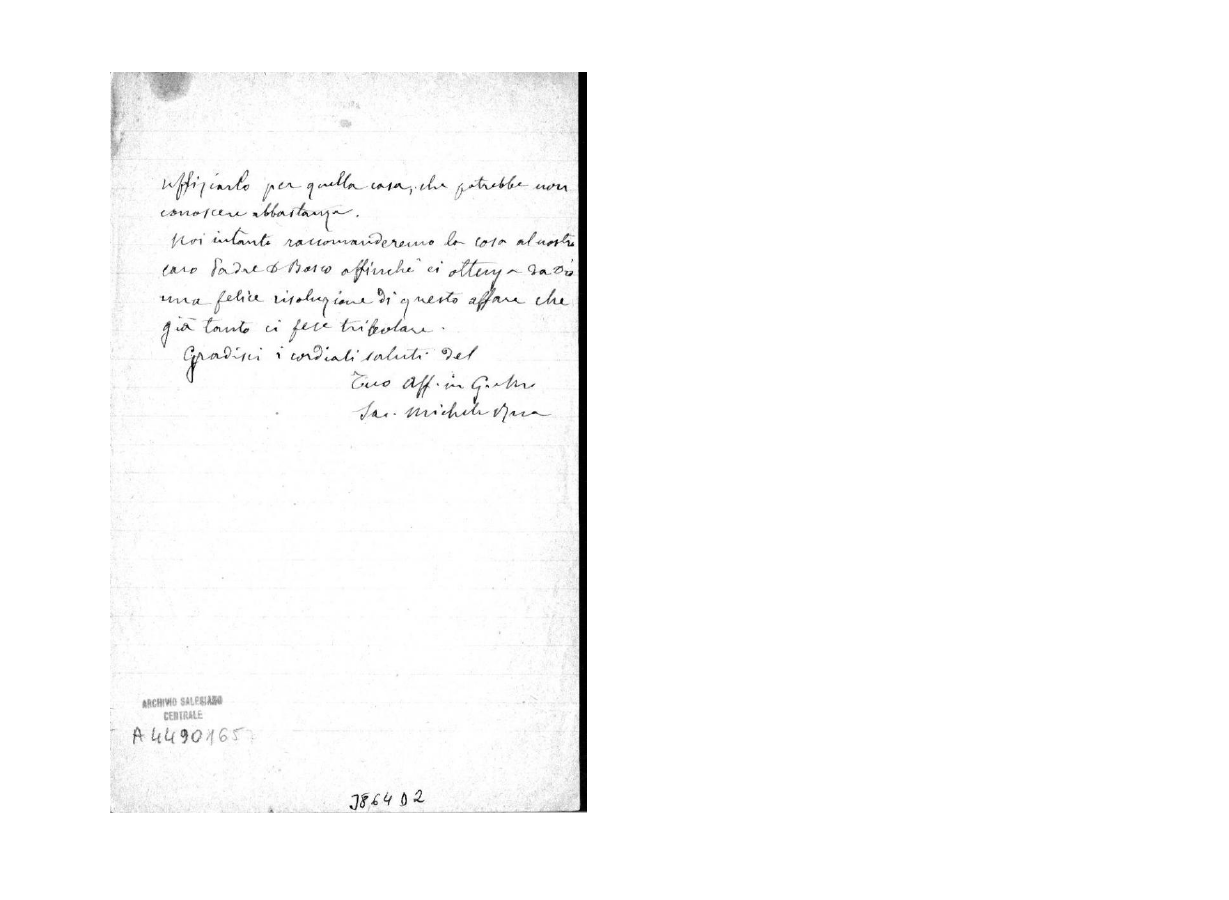 uffiziarlo per quella casa, che potrebbe non
conoscere abbastanza.
Noi intanto raccomanderemo la cosa al nostro
caro Padre D Bosco affinchè ci ottenga da Dio
una felice risoluzione di questo affare che
già tanto ci fece tribolare.
Gradisci i cordiali saluti del
Tuo Aff. in G. e M.
Sac. Michele Rua
ARCHIVIO SALESIANO
CENTRALE
A4490165
3864 D2